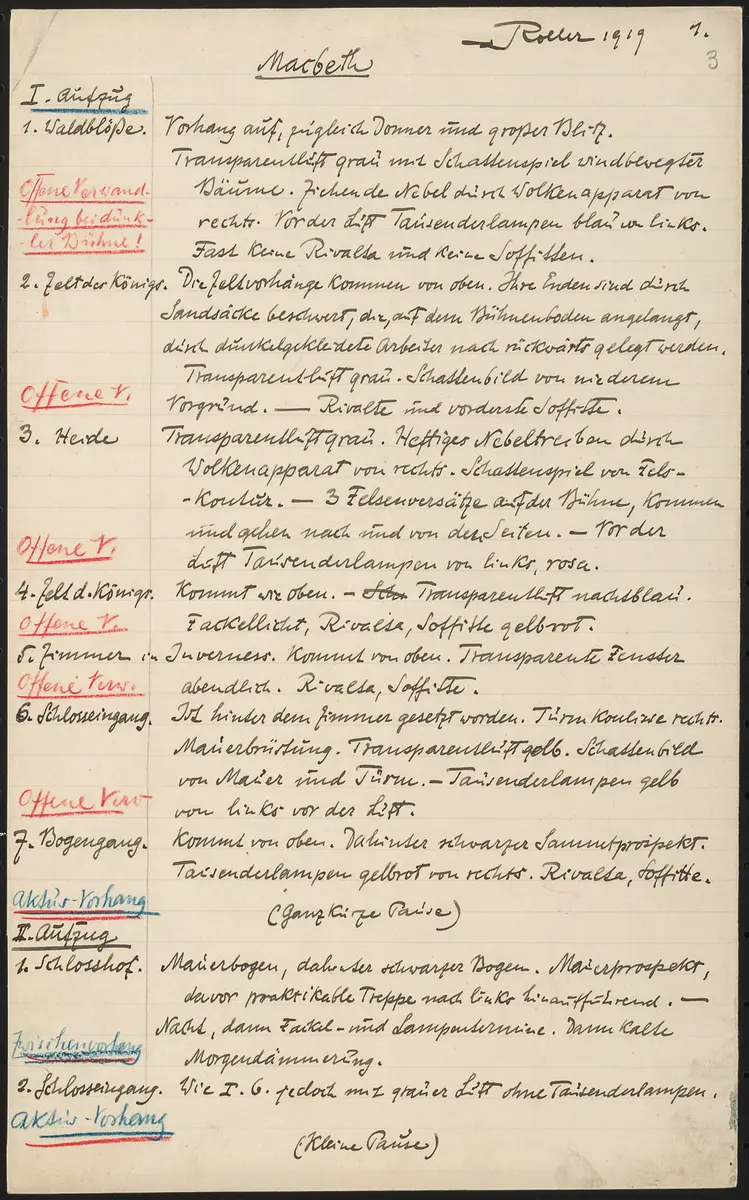 Roller 1919 1.
3
Macbeth
I. Aufzug
1. Waldblöße. Vorhang auf, zugleich Donner und großer Blitz.
Transparentluft grau mit Schattenspiel windbewegter
Offene Verwand- Bäume. Ziehende Nebel durch Wolkenapparat von
-lung bei dunk- rechts. Vor der Luft Tausenderlampen blau von links.
-ler Bühne! Fast keine Rivalta und keine Soffitten.
2. Zelt des Königs. Die Zeltvorhänge kommen von oben. Ihre Enden sind durch
Sandsäcke beschwert, die, auf dem Bühnenboden angelangt,
durch dunkelgekleidete Arbeiter nach rückwärts gelegt werden.
Transparentluft grau. Schattenbild von niederem
Offene V. Vorgrund. — Rivalte und vorderste Soffitte.
3. Heide Transparentluft grau. Heftiges Nebeltreiben durch
Wolkenapparat von rechts. Schattenspiel von Fels-
-kontur. — 3 Felsenversätze auf der Bühne, kommen
und gehen nach und von den Seiten. — Vor der
Offene V. Luft Tausenderlampen von links, rosa.
4. Zelt d. Königs. Kommt wie oben. — Transparentluft nachtblau.
Offene V. Fackellicht, Rivalta, Soffitte gelbrot.
5. Zimmer in Inverness. Kommt von oben. Transparente Fenster
Offene Verw. abendlich. Rivalta, Soffitte.
6. Schlosseingang. Ist hinter dem Zimmer gesetzt worden. Turmkoulisse rechts.
Mauerbrüstung. Transparentluft gelb. Schattenbild
von Mauer und Turm. — Tausenderlampen gelb
Offene Verw von links vor der Luft.
7. Bogengang. Kommt von oben. Dahinter schwarzer Sammtprospekt.
Tausenderlampen gelbrot von rechts. Rivalta, Soffitte.
Aktur-Vorhang (Ganz kurze Pause)
II. Aufzug
1. Schlosshof. Mauerbogen, dahinter schwarzer Bogen. Mauerprospekt,
davor praktikable Treppe nach links hinaufführend. —
Nacht, dann Fackel- und Lampentermine. Dann kalte
Zwischenvorhang Morgendämmerung.
2. Schlosseingang. Wie I. 6. jedoch mit grauer Luft ohne Tausenderlampen.
Aktur-Vorhang
(Kleine Pause)